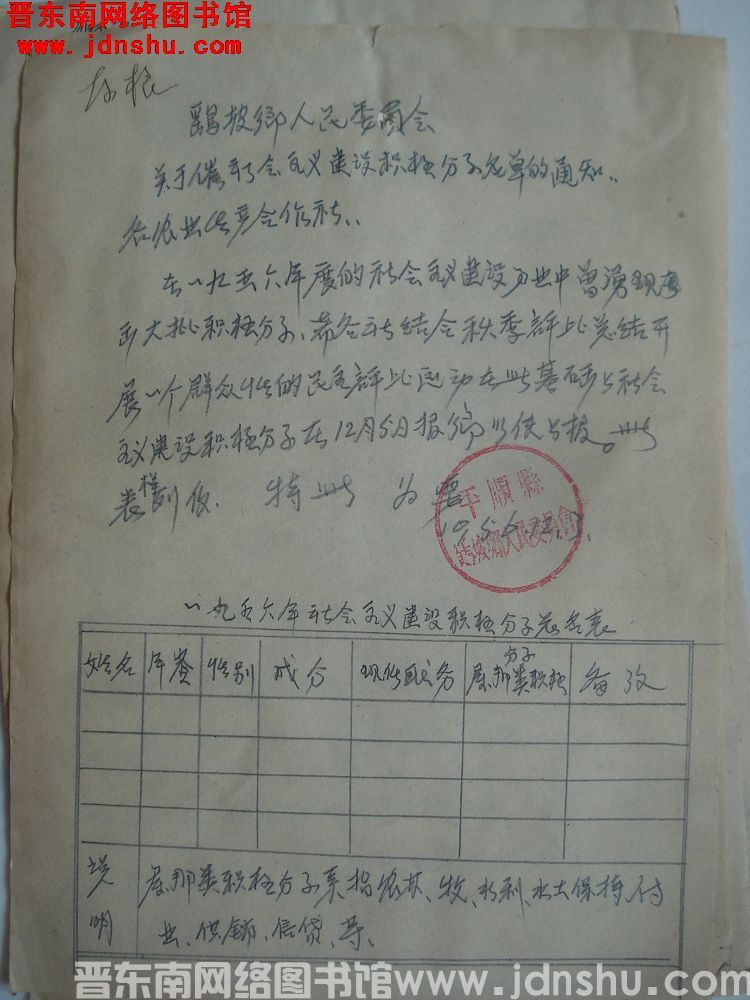 晋东南网络图书馆
www.jdnshu.com
存根
鷄坡鄉人民委員会
关于催社会主义建设积极分子名单的通知..
各农业生产合作社..
在一九五六年度的社会主义建设事业中曾湧现
出大批积极分子、希各社结合秋季評比总结开
展一个群众性的民主評比运动在此基础上社会
主义建设积极分子在12月5日报鄉以便上报。此
表樣刻仮. 特此为要
平順縣
人民委員會
1956.12.
一九五六年社会主义建设积极分子名表
姓名 年令 性别 成分 现任职务 屬那类积极分子 备考
说明 屬那类积极分子系指农林、牧、水利、水土保持、付
业、供銷、信贷、等、
晋东南网络图书馆www.jdnshu.com